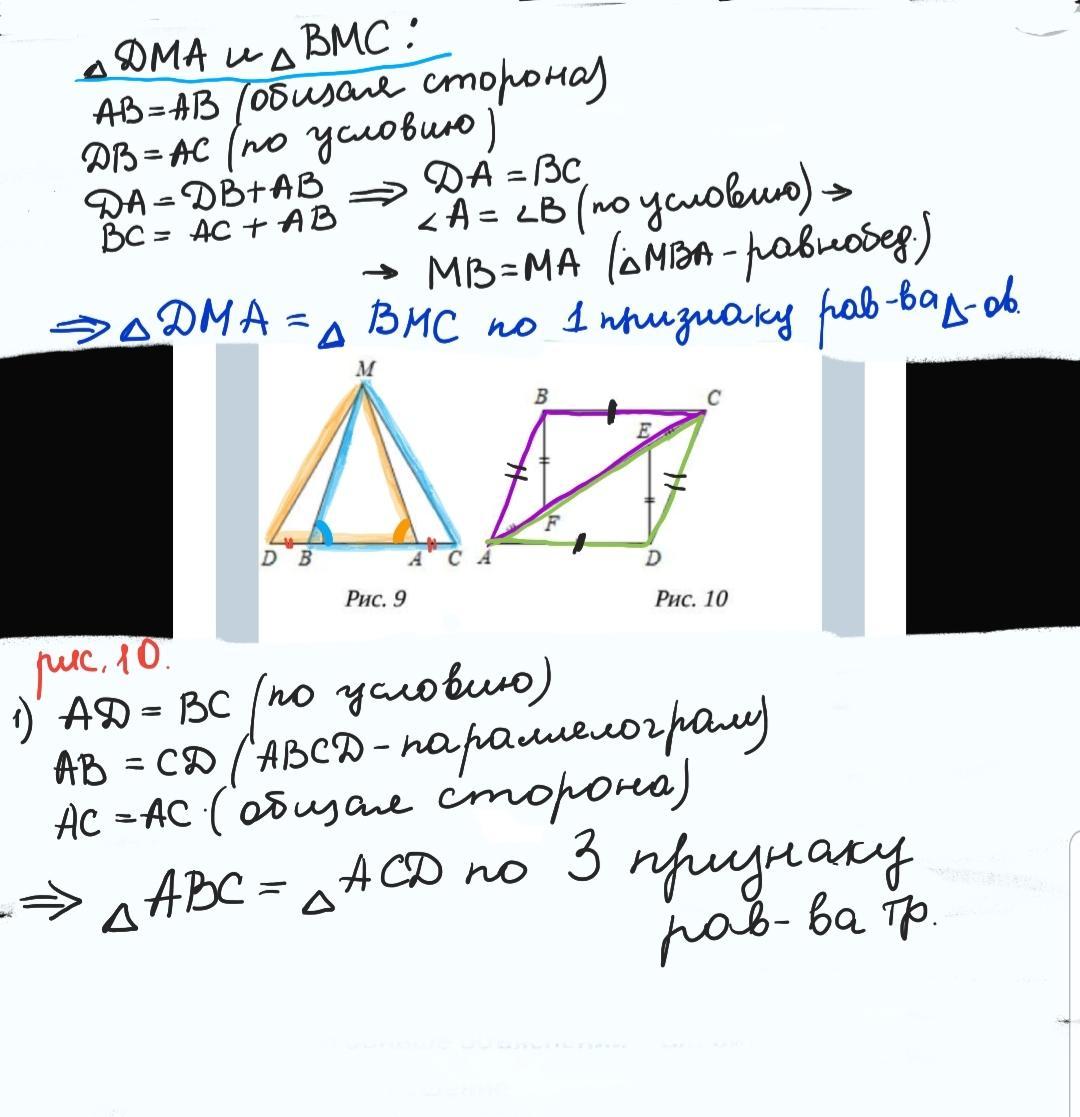 △DMA и △BMC:
AB=AB (общая сторона)
DB=AC (по условию)
DA=DB+AB ⇒ DA=BC
BC= AC+AB ∠A=∠B (по условию) →
→ MB=MA (△MBA-равнобед.)
⇒ △DMA = △BMC по 1 признаку рав-ва △-ов.
M
D B A C
Рис. 9
B C
E
F
A D
Рис. 10
рис.10.
1) AD = BC (по условию)
AB = CD (ABCD-параллелограмм)
AC=AC (общая сторона)
⇒ △ABC = △ACD по 3 признаку
рав-ва тр.